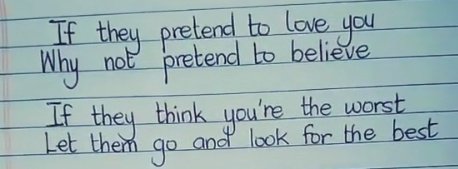 If they pretend to love you
Why not pretend to believe
If they think you're the worst
Let them go and look for the best